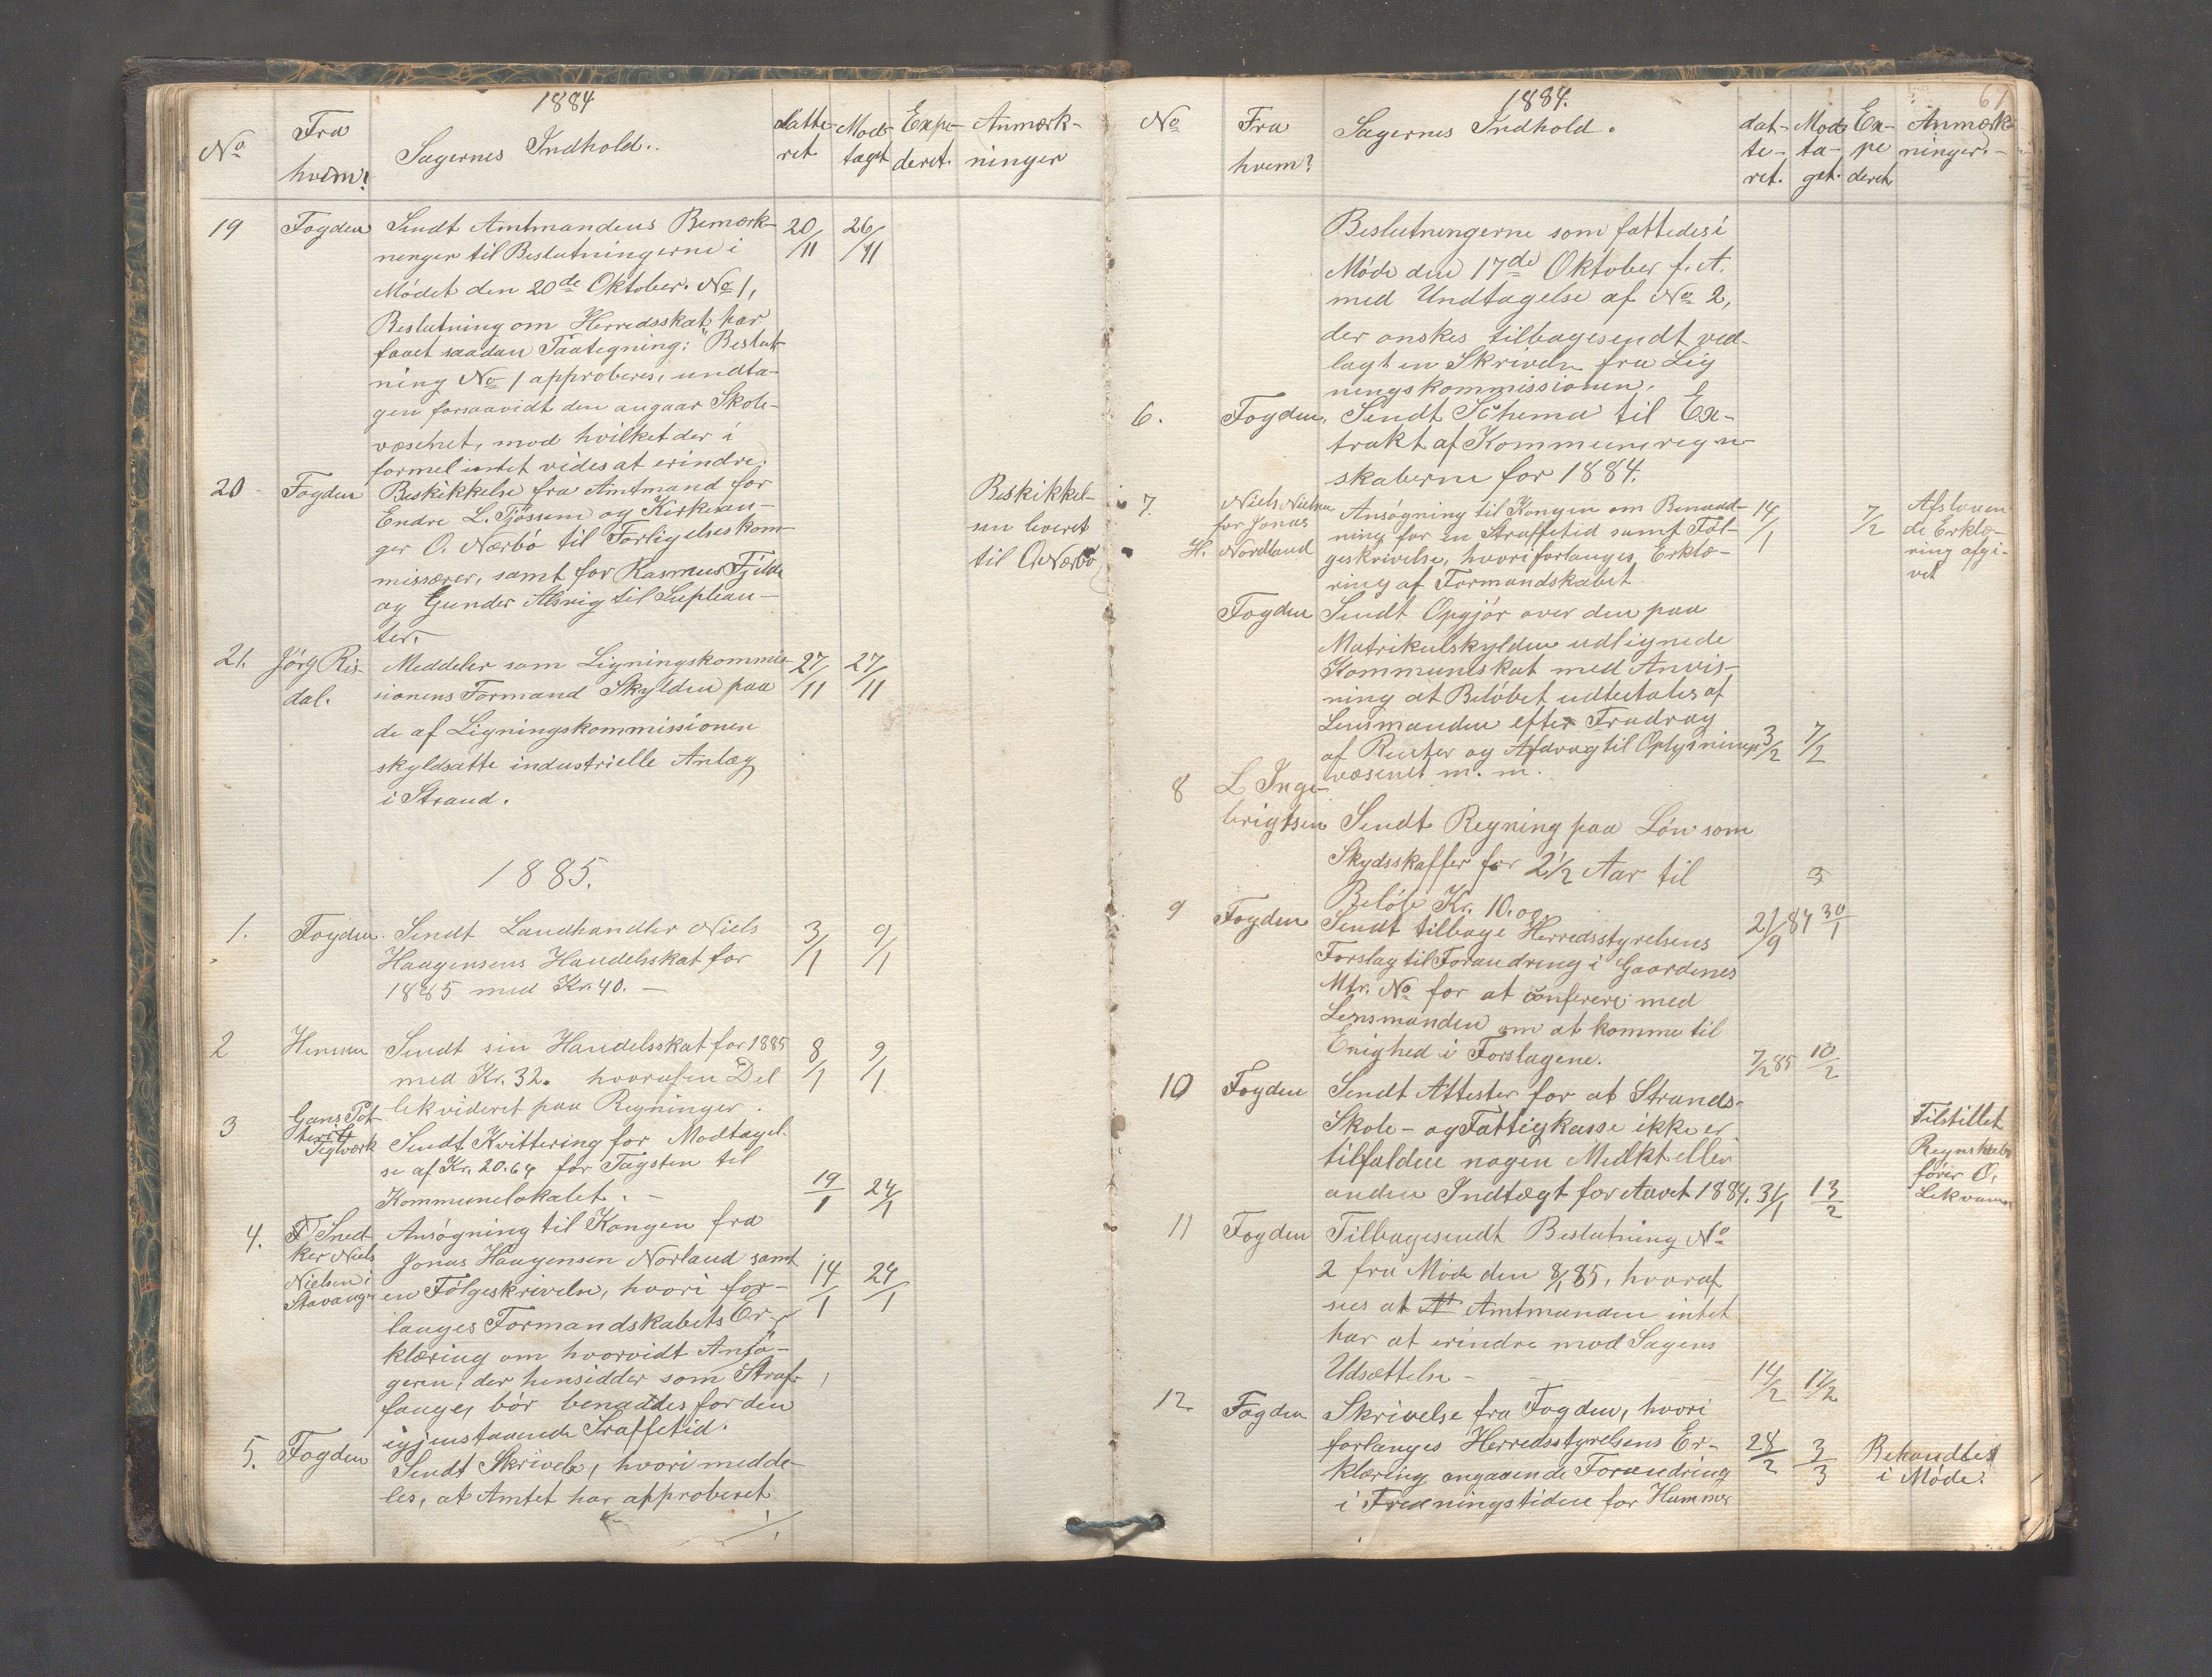 1884
No
Fra
hvem?
Sagernes Indhold.
datte-
ret
Mod-
taget
Expe-
deret.
Anmærk-
ninger
19
Fogden
Sendt Amtmandens Bemærk-
20/11
26/11
ninger til Beslutningerne i
Mödet den 20de Oktober. No 1,
Beslutning om Herredsskat har
faaet saadan Paategning: "Beslut-
ning No 1 approberes, undta-
gen forsaavidt den angaar Skole-
væsenet, mod hvilket der i
formel intet vides at erindre.
20
Fogden
Beskikkelse fra Amtmand for
Endre L. Tjössem og Kirkesan-
ger O. Nærbö til Forligelseskom-
missærer, samt for Rasmus Fjelde
og Gunder Alsvig til Suplean-
ter.
Beskikkel-
sen leveret
til O. Nærbö
21.
Jörg Ris-
dal.
Meddeler som Ligningskommis-
27/11
27/11
sionens Formand Skylden paa
de af Ligningskommissionen
skyldsatte industrielle Anlæg
i Strand.
1885.
1.
Fogden.
Sendt Landhandler Niels
3/1
9/1
Haagensens Handelsskat for
1885 med Kr. 40. —
2
Sendt sin Handelsskat for 1885
8/1
9/1
med Kr. 32. hvoraf en Del
likvideret paa Regninger.
3
Gans Pot-
teri &
Teglværk
Sendt Kvittering for Modtagel-
se af Kr. 20.64 for Tagsten til
Kommunelokalet. —
19/1
24/1
4.
Sned-
ker Niels
Nielsen i
Stavanger
Ansögning til Kongen fra
Jonas Haagensen Norland samt
14/1
24/1
en Fölgeskrivelse, hvori for-
langes Formandskabets Er-
klæring om hvorvidt Ansö-
geren, der hensidder som Straf-
fange, bör benaades for den
igjenstaaende Straffetid.
5.
Fogden
Sendt Skrivelse, hvori medde-
les, at Amtet har approberet
1884.
67
No
Fra
hvem?
Sagernes Indhold.
dat-
te-
ret.
Mod-
ta-
get.
Ex-
pe
deret
Anmærk-
ninger.-
Beslutningerne som fattedes i
Möde den 17de Oktober f. A.
med Undtagelse af No 2,
der onskes tilbagesendt ved-
lagt en Skrivelse fra Lig
ningskommissionen.
6.
Fogden.
Sendt Schema til Ex-
trakt af Kommuneregn-
skaberne for 1884.
7.
Niels Nielsen
for Jonas
H. Nordland
Ansögning til Kongen om Benaad-
14/1
7/2
ning for en Straffetid samt Föl-
geskrivelse, hvori forlanges Erklæ-
ring af Formandskabet.
Afslaaen
de Erklæ-
ring afgi-
vet
Fogden
Sendt Opgjör over den paa
Matrikulskylden udlignede
Kommuneskat med Anvis-
ning at Belöbet udbetales af
Lensmanden efter Fradrag
af Renter og Afdrag til Oplysnings-
3/2
7/2
væsenet m. m.
8
L Inge-
brigtsen
Sendt Regning paa Lön som
Skydsskaffer for 2 1/2 Aar til
Belöb Kr. 10.00.
9
Fogden
Sendt tilbage Herredsstyrelsens
21/9 84
30/1
Forslag til Forandring i Gaardenes
Mtr. No for at conferere med
Lensmanden om at komme til
Enighed i Forslagene.
7/2 85
10/2
10
Fogden
Sendt Attester for at Strands
Skole- og Fattigkasse ikke er
tilfalden nogen Mulkt eller
anden Indtægt for Aaret 1884.
31/1
13/2
Tilstillet
Regnskabs
förer O.
Lekvam
11
Fogden
Tilbagesendt Beslutning No
2 fra Möde den 8/1 85, hvoraf
sees at Amtmanden intet
har at erindre mod Sagens
Udsættelse -
14/2
17/2
12.
Fogden
Skrivelse fra Fogden, hvori
forlanges Herredsstyrelsens Er-
klæring angaaende Forandring
i Fredningstiden for Hummer
28/2
3/3
Behandlet
i Möde.